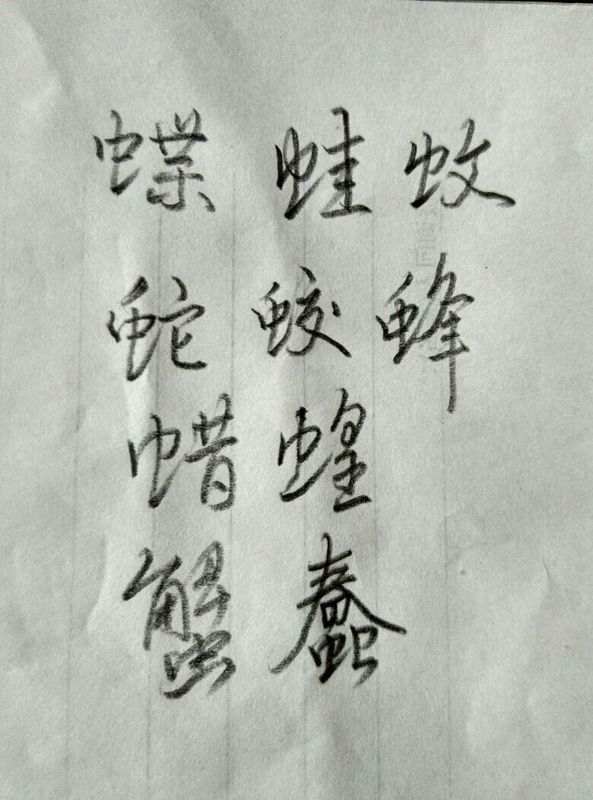 蝶 蛙 蚊
蛇 蛟 蜂
蜡 蝗
蟹 蠢